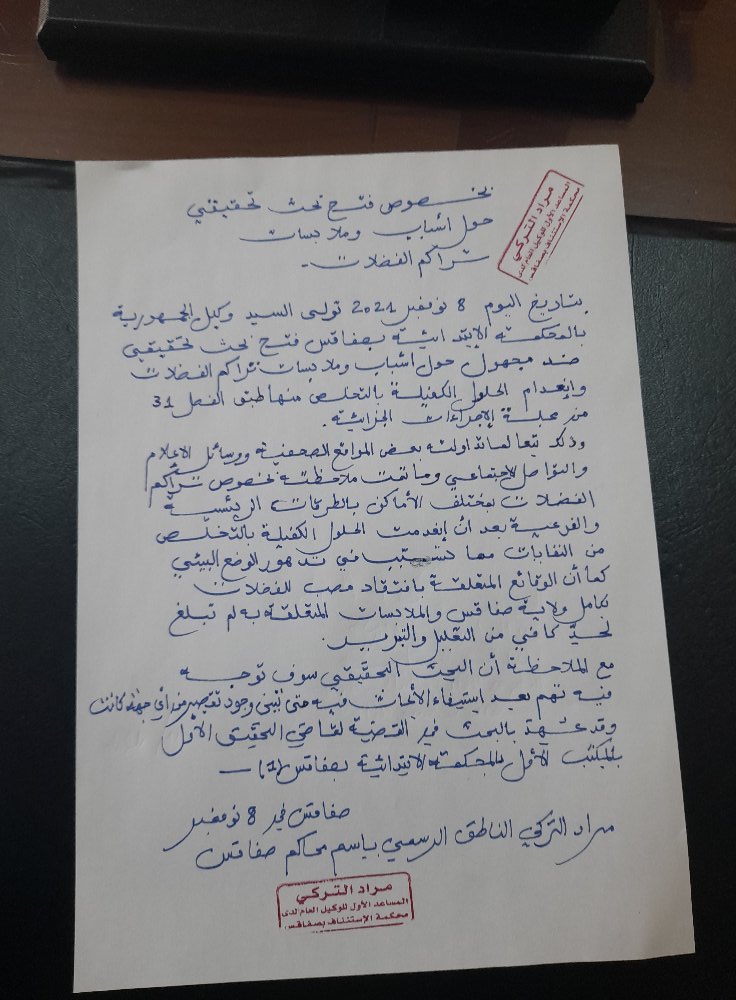 بخصوص فتح بحث تحقيقي
حول أسباب وملابسات
تراكم الفضلات -
مراد التركي
المساعد الأول للوكيل العام لدى
محكمة الإستئناف بصفاقس
بتاريخ اليوم 8 نوفمبر 2021 تولى السيد وكيل الجمهورية
بالمحكمة الابتدائية بصفاقس فتح بحث تحقيقي
ضد مجهول حول أسباب وملابسات تراكم الفضلات
وانعدام الحلول الكفيلة بالتخلص منها طبق الفصل 31
من مجلة الإجراءات الجزائية.
وذلك تبعا لما تداولته بعض المواقع الصحفية ووسائل الاعلام
والتواصل الاجتماعي وما تمت ملاحظته بخصوص تراكم
الفضلات بمختلف الأماكن بالطرقات الرئيسية
والفرعية بعد أن إنعدمت الحلول الكفيلة بالتخلّص
من النفايات مما تسبّب في تدهور الوضع البيئي
كما أن الوقائع المتعلقة بافتقاد مصب للفضلات
بكامل ولاية صفاقس والملابسات المتعلقة به لم تبلغ
لحدّ كافي من التعليل والتبرير.
مع الملاحظة أن البحث التحقيقي سوف توجه
فيه تهم بعد استيفاء الأبحاث فيه متى تبيّن وجود تقصير من أي جهة كانت
وقد عهد بالبحث في القضية لقاضي التحقيق الأول
بالمكتب الأول بالمحكمة الابتدائية بصفاقس (1) -
صفاقس في 8 نوفمبر
مراد التركي الناطق الرسمي باسم محاكم صفاقس
مراد التركي
المساعد الأول للوكيل العام لدى
محكمة الإستئناف بصفاقس